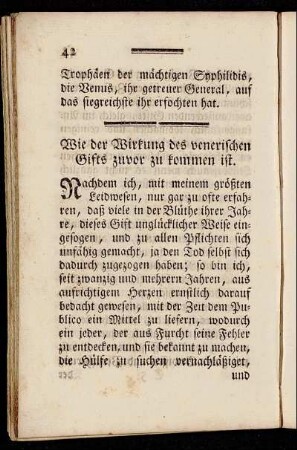 42
Trophäen der mächtigen Syphilidis,
die Venus, ihr getreuer General, auf
das siegreichste ihr erfochten hat.
Wie der Wirkung des venerischen
Gifts zuvor zu kommen ist.
Nachdem ich, mit meinem größten
Leidwesen, nur gar zu ofte erfah-
ren, daß viele in der Blüthe ihrer Jah-
re, dieses Gift unglücklicher Weise ein-
gesogen, und zu allen Pflichten sich
unfähig gemacht, ja den Tod selbst sich
dadurch zugezogen haben; so bin ich,
seit zwanzig und mehrern Jahren, aus
aufrichtigem Herzen ernstlich darauf
bedacht gewesen, mit der Zeit dem Pu-
blico ein Mittel zu liefern, wodurch
ein jeder, der aus Furcht seine Fehler
zu entdecken, und sie bekannt zu machen,
die Hülfe zu suchen vernachläßiget,
und